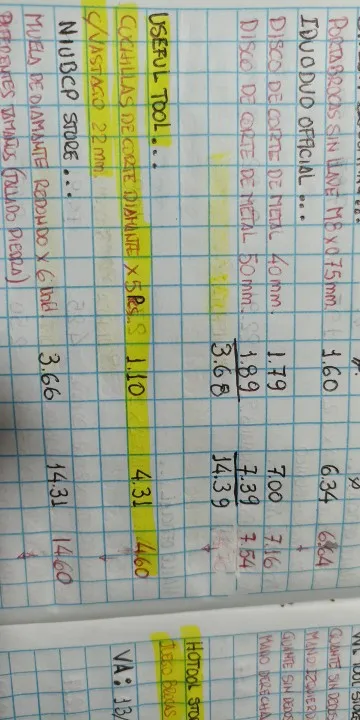 PORTABROCAS SIN LLAVE M8 x 0.75mm. 1.60 6.34 6.64
IDUODUO OFFICIAL...
DISCO DE CORTE DE METAL 40mm. 1.79 7.00 7.16
DISCO DE CORTE DE METAL 50mm. 1.89 7.39 7.54
3.68 14.39
USEFUL TOOL...
CUCHILLAS DE CORTE DIAMANTE x 5 Pcs. 1.10 4.31 4.60
C/VASTAGO 22mm.
NIUBCP STORE...
MUELA DE DIAMANTE REDONDO x 6 Und 3.66 14.31 14.60
DIFERENTES TAMAÑOS (PULIDO PIEDRA)
GUANTE SIN DEDOS
MANO IZQUIERDA
GUANTE SIN DEDOS
MANO DERECHA
HOTOOL STORE
VA: 13